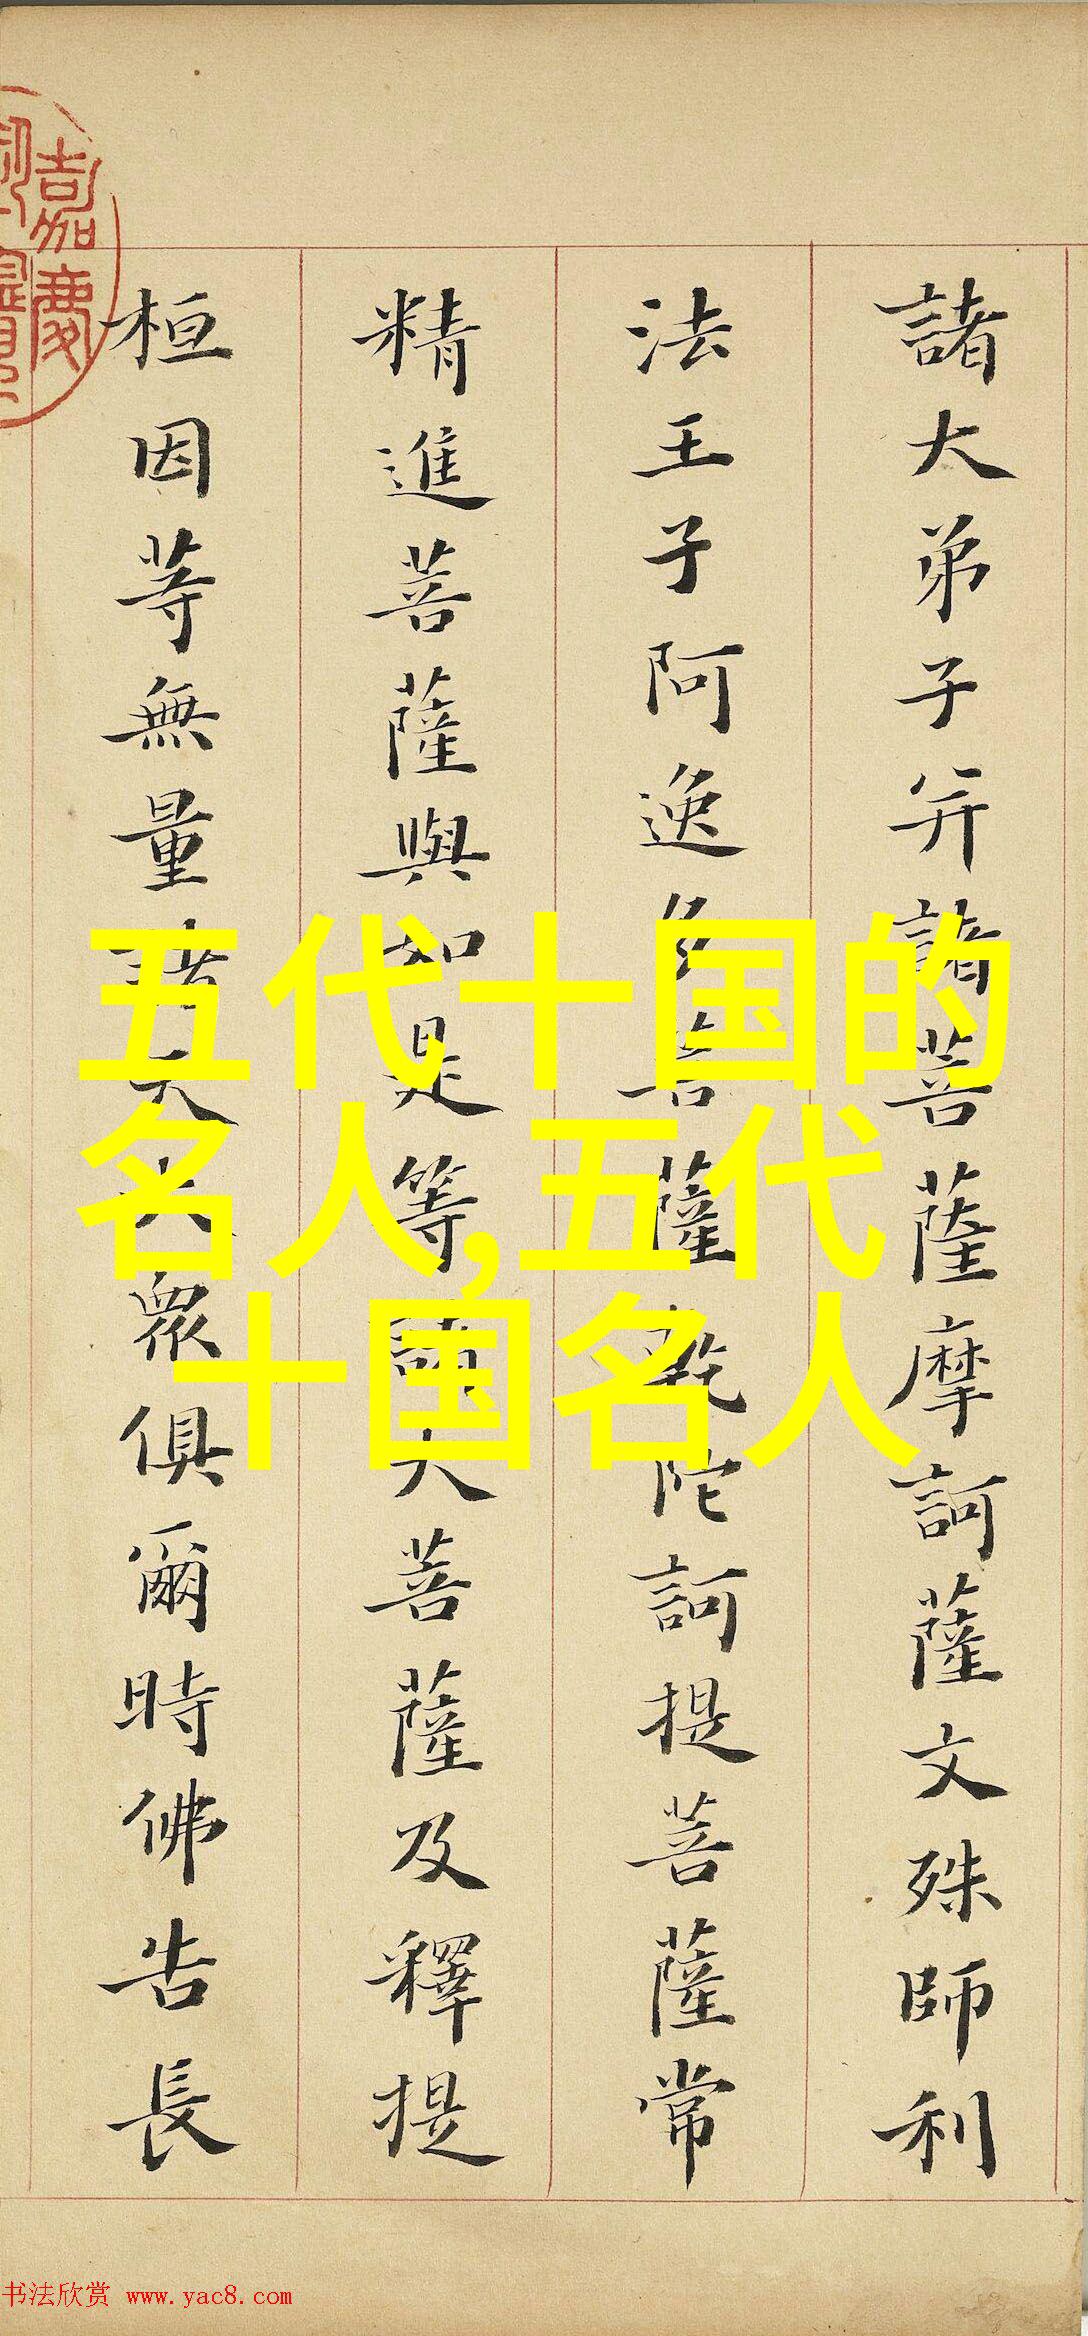 諸大弟子并諸菩薩摩訶薩文殊師利
法王子阿逸多菩薩乾陀訶提菩薩常
精進菩薩與如是等諸大菩薩及釋提
桓因等無量諸天大衆俱爾時佛告長
嘉慶
五代十国的
名人,五代
十国名人
书法欣赏 www.yac8.com